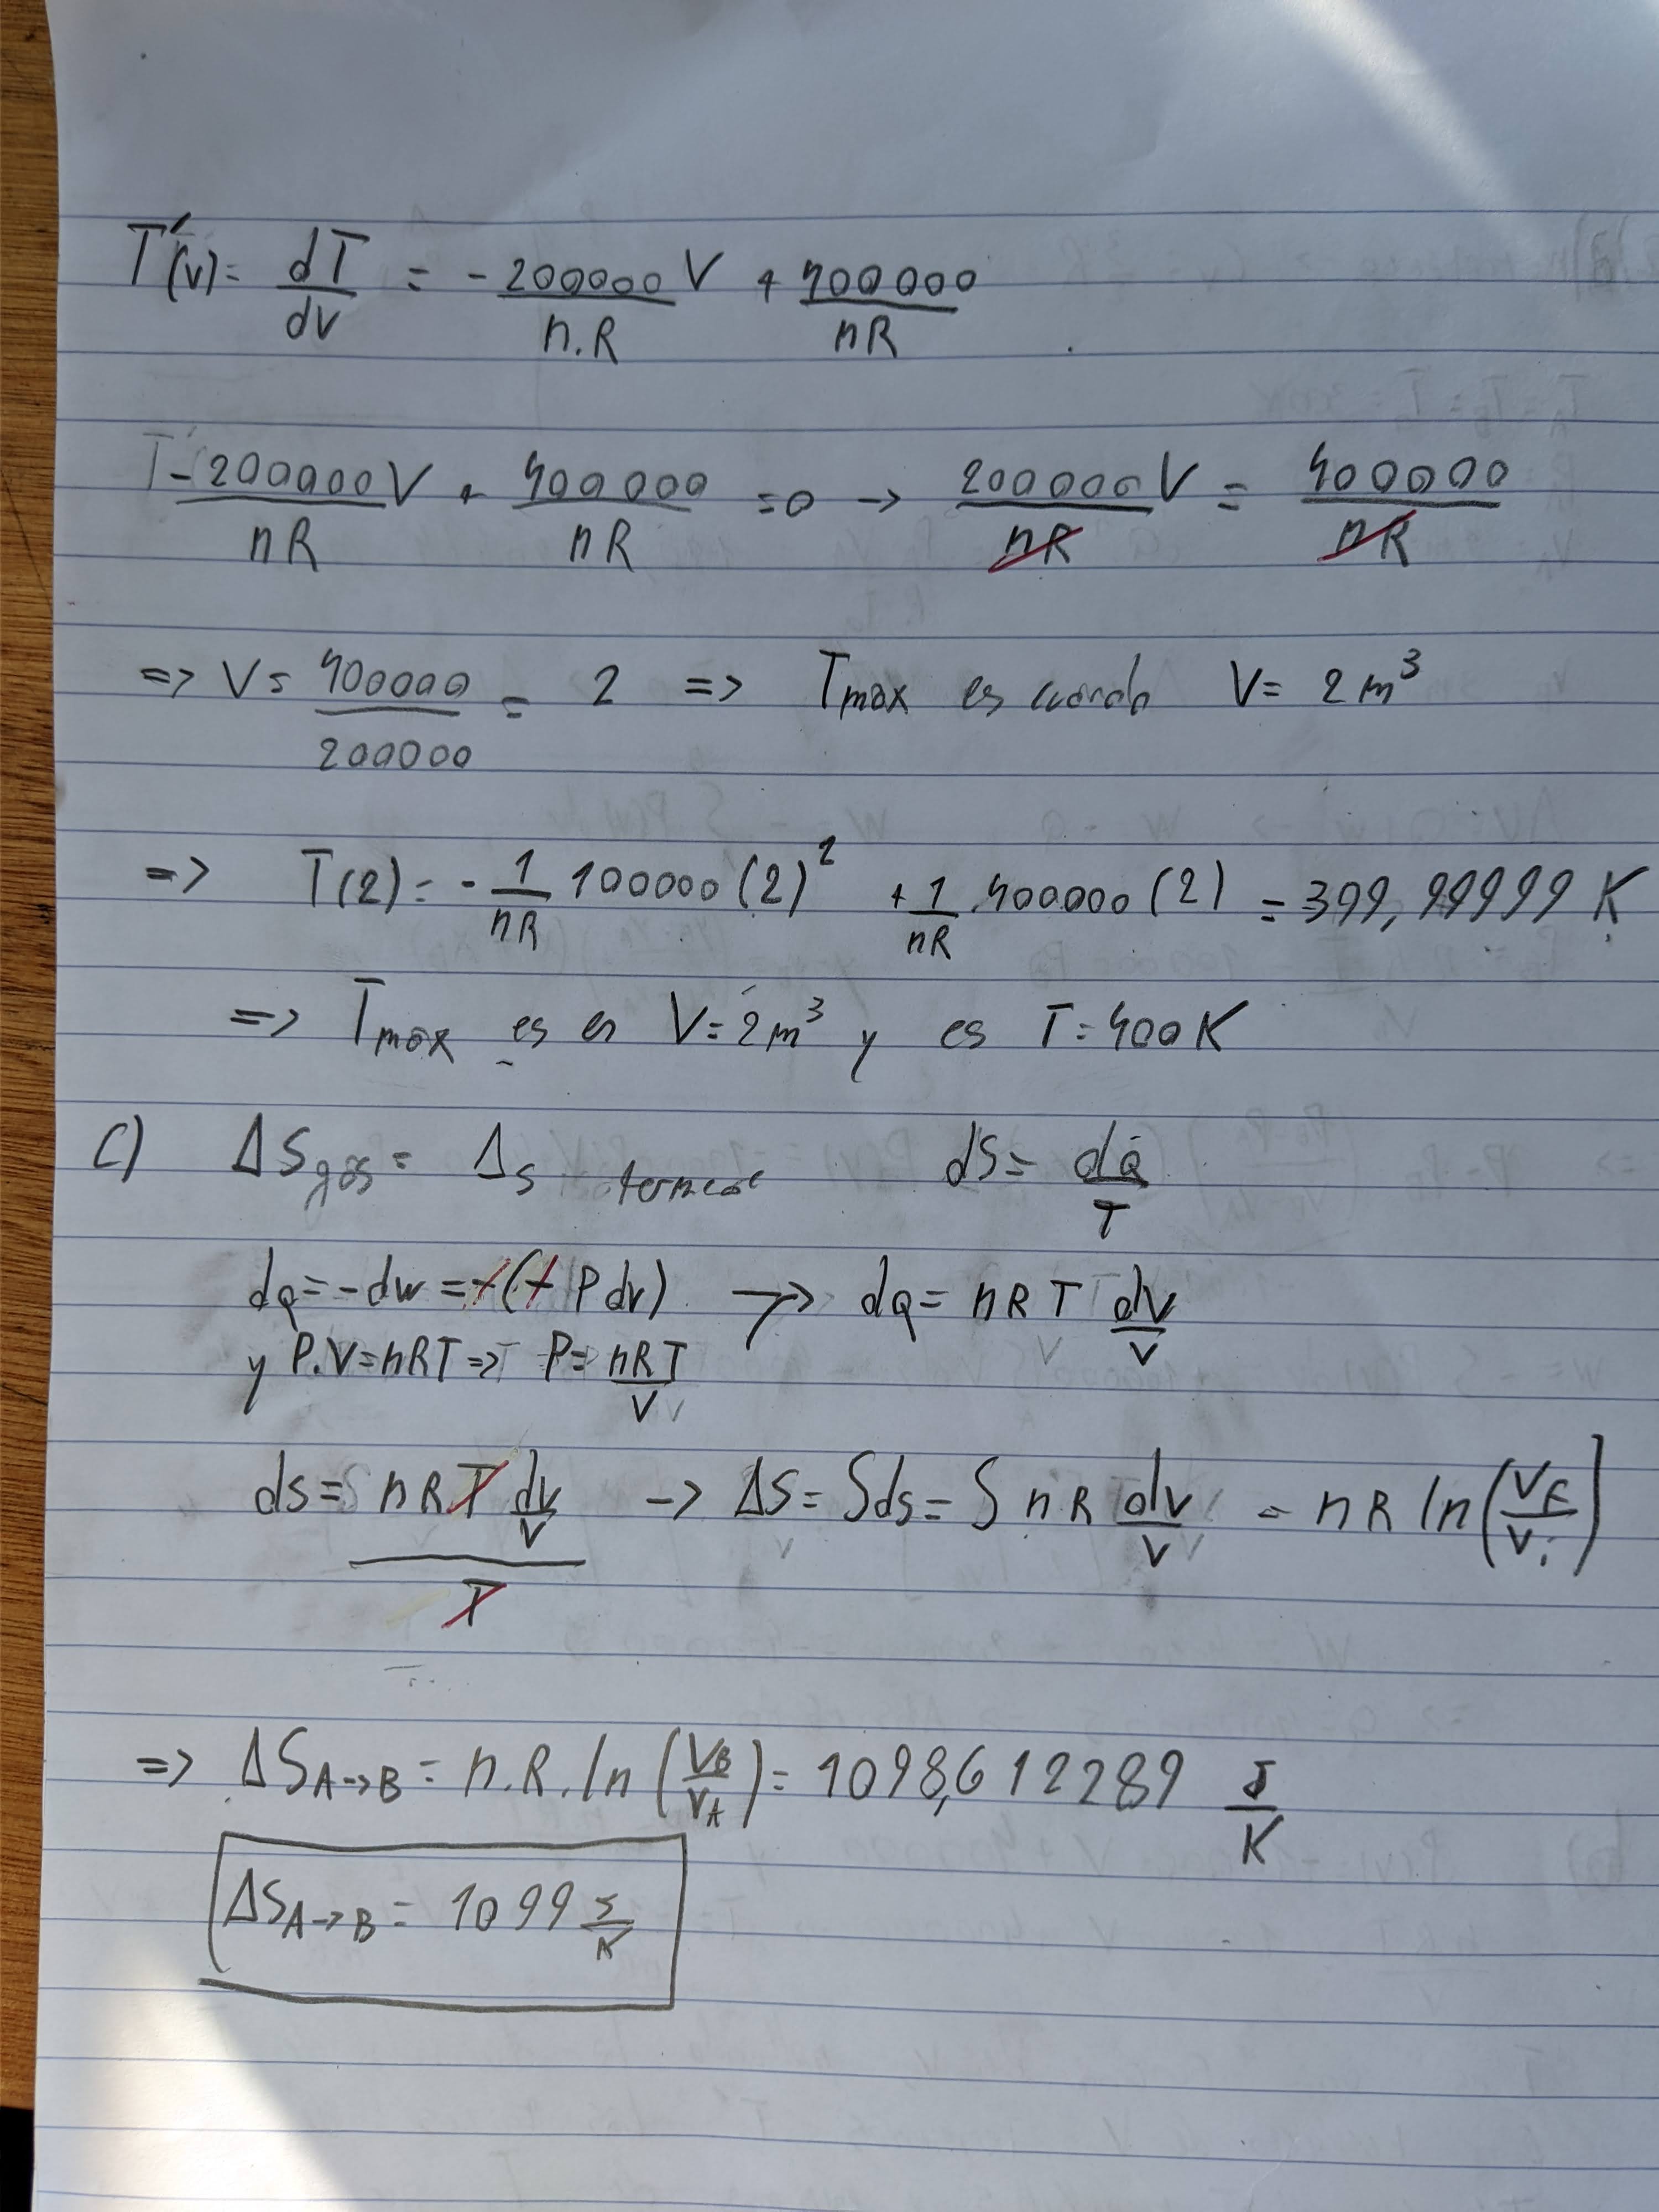 T´(v) = dT/dv = - 200000/n.R V + 400000/nR
- 200000/nR V + 400000/nR = 0 -> 200000/nR V = 400000/nR
=> V = 400000/200000 = 2 => Tmax es cuando V = 2 m³
=> T(2) = - 1/nR 100000 (2)² + 1/nR . 400000 (2) = 399,99999 K
=> Tmax es en V = 2 m³ y es T = 400 K
C) ΔSgas = Δs dS = dQ/T
dQ = -dw = -(- P dv) -> dQ = n R T dv/v
y P.V = nRT => P = nRT/V
ds = n R T dv/v / T -> ΔS = ∫ds = ∫ n R dv/v = n R ln(VF/Vi)
=> ΔS A->B = n.R.ln(VB/VA) = 1098,612289 J/K
ΔS A->B = 1099 J/K